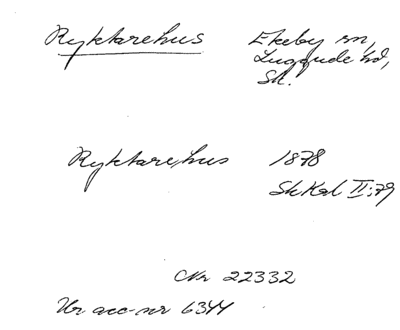 Ryktarehus Ekeby sn,
Luggude hd,
Sk.
Ryktarehus 1878
SkKal II:79
CNr 22332
Ur acc-nr 6344